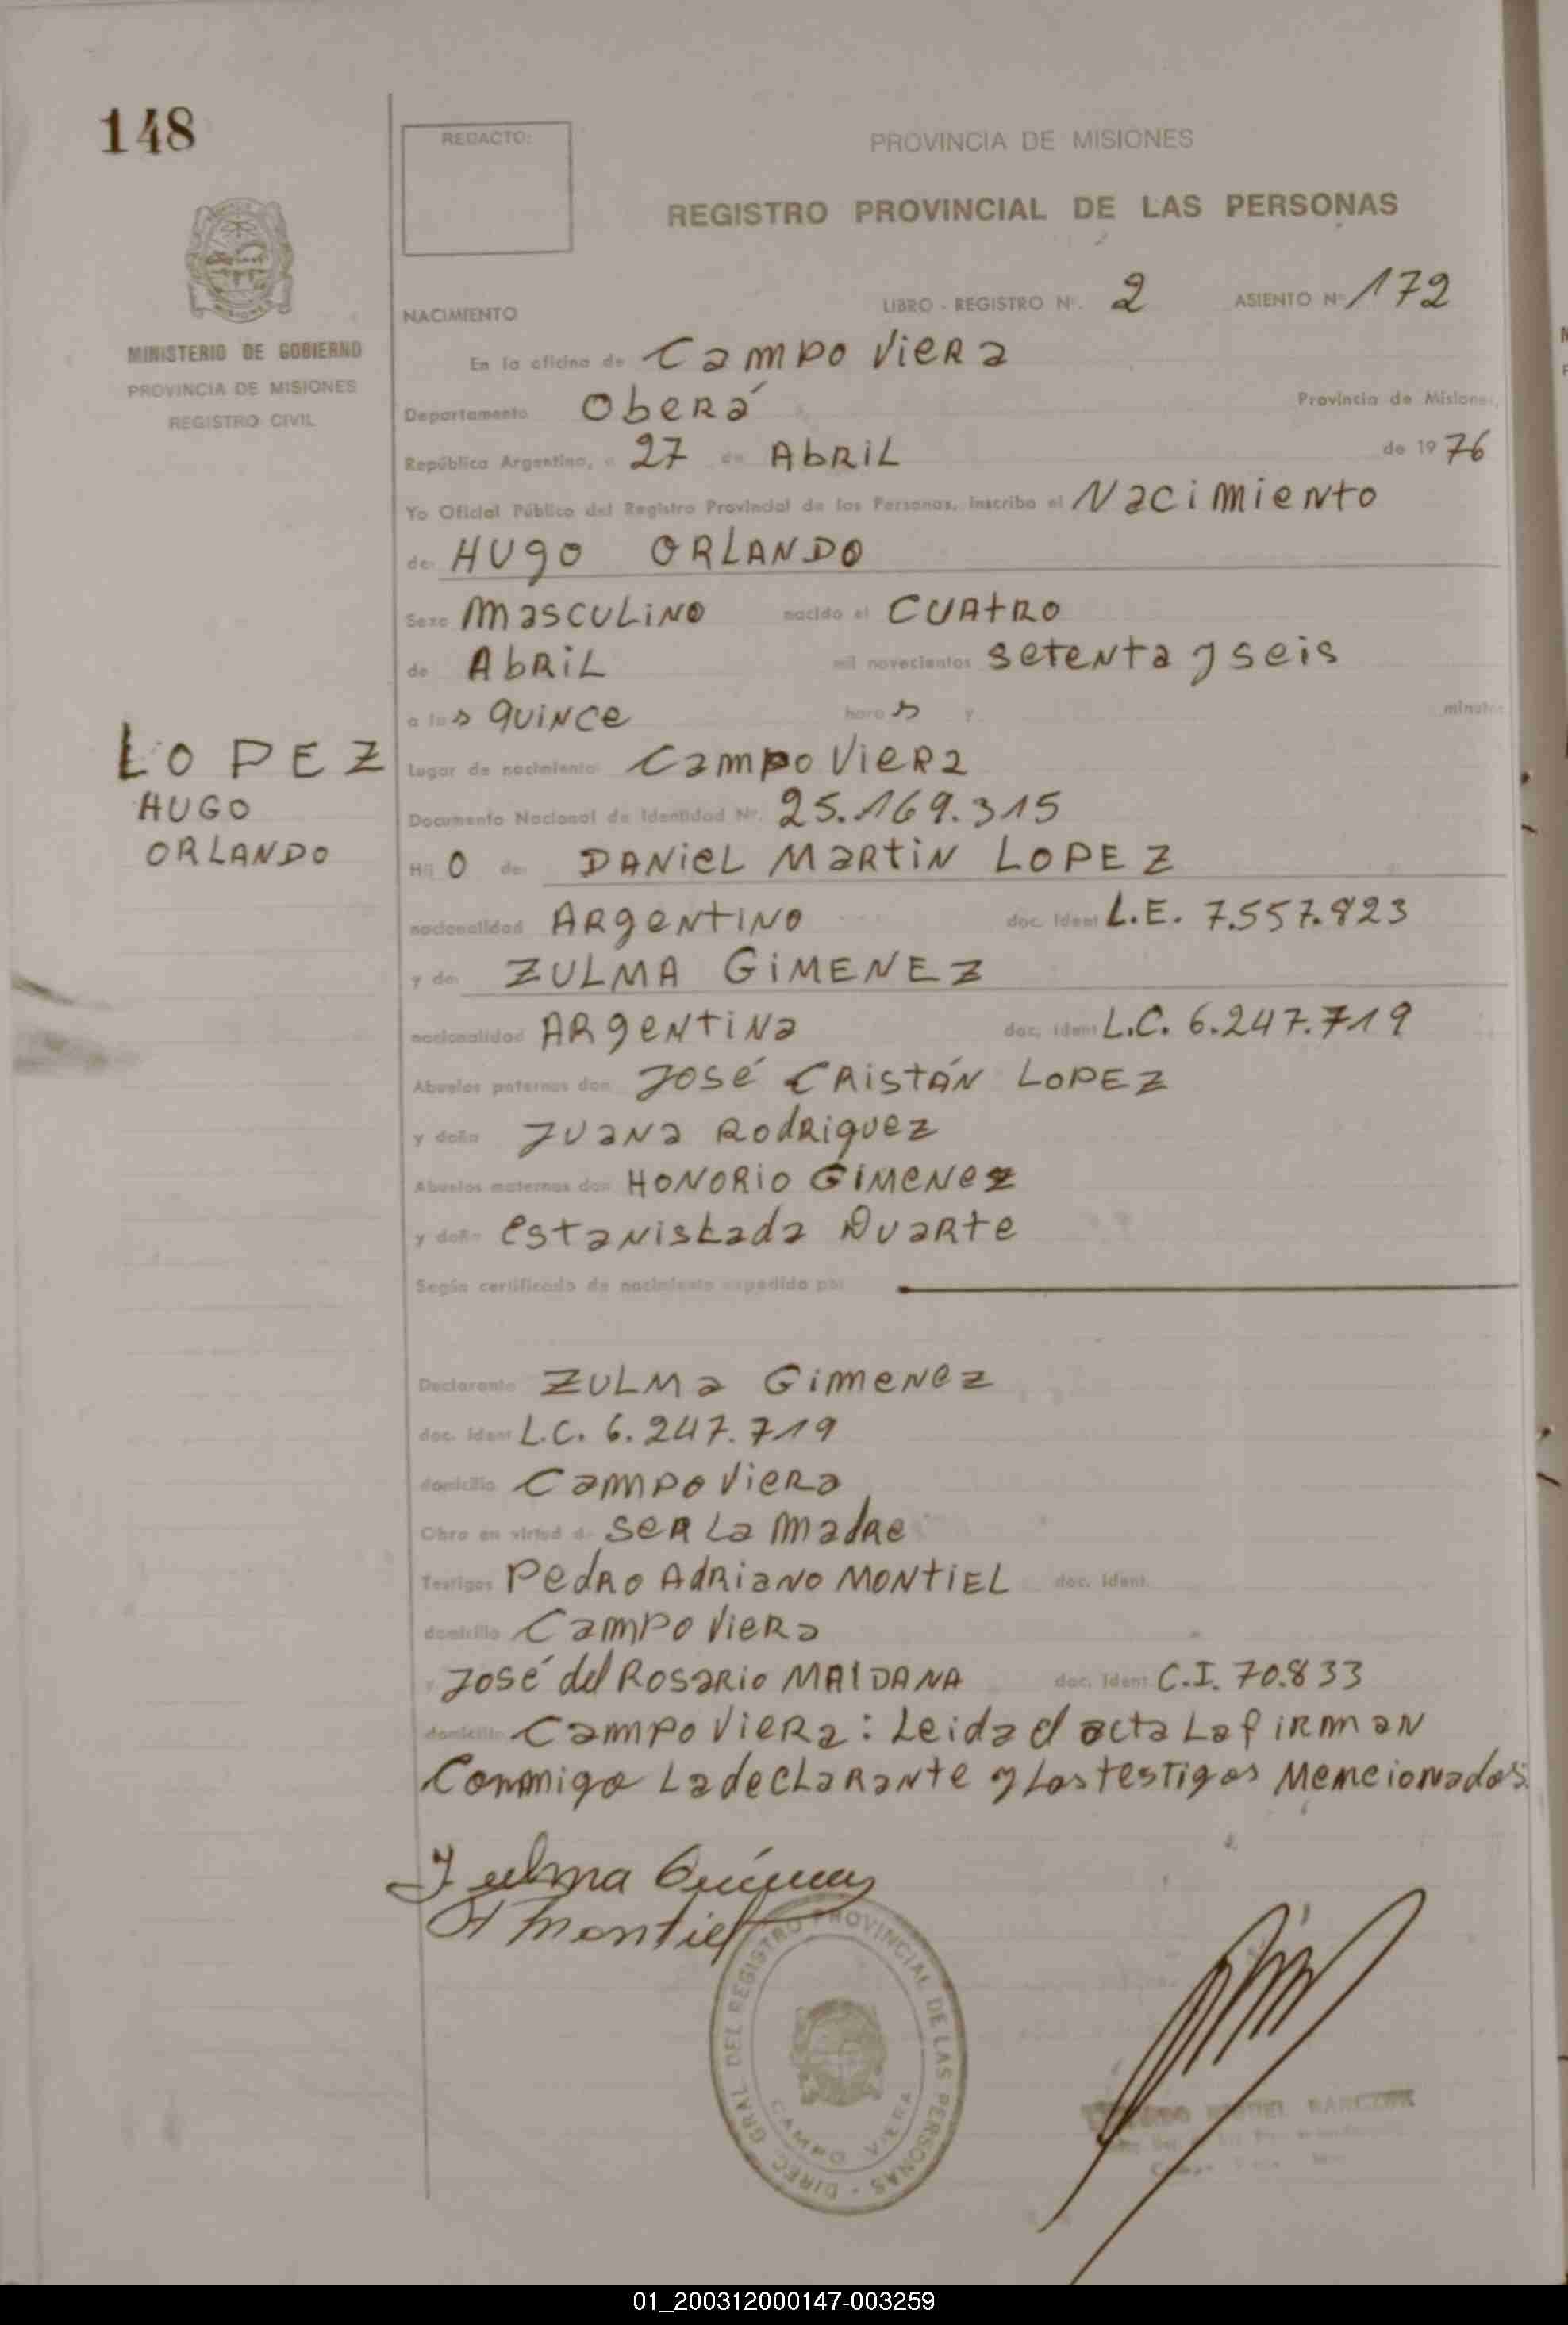 148
REDACTO:
PROVINCIA DE MISIONES
REGISTRO PROVINCIAL DE LAS PERSONAS
MINISTERIO DE GOBIERNO
PROVINCIA DE MISIONES
REGISTRO CIVIL
NACIMIENTO LIBRO - REGISTRO Nº. 2 ASIENTO Nº 172
En la oficina de Campo Viera
Departamento Oberá Provincia de Misiones,
República Argentina, a 27 de Abril de 1976
Yo Oficial Público del Registro Provincial de las Personas, inscribo el Nacimiento
de HUgo ORLANDO
Sexo masculino nacido el CUATRO
de Abril mil novecientos setenta y seis
a las quince horas y minutos
LOPEZ
HUGO
ORLANDO
Lugar de nacimiento Campo Viera
Documento Nacional de Identidad Nº. 25.169.315
Hijo de: DANIEL MARTIN LOPEZ
nacionalidad Argentino doc. Ident L.E. 7.557.823
y de ZULMA GIMENEZ
nacionalidad Argentina doc. ident L.C. 6.247.719
Abuelos paternos don José CRISTÁN LOPEZ
y doña Juana Rodriguez
Abuelos maternos don HONORIO GIMENEZ
y doña Estanislada Duarte
Según certificado de nacimiento expedido por
Declarante ZULMA Gimenez
doc. ident L.C. 6.247.719
domicilio Campo Viera
Obra en virtud de ser la madre
Testigos Pedro Adriano MONTIEL doc. ident.
domicilio Campo Viera
y José del Rosario MAIDANA doc. ident C.I. 70.833
domicilio Campo Viera: Leida el acta la firman
Conmigo la declarante y los testigos Mencionados.
Zulma Gimenez
A Montiel
DIREC. GRAL DEL REGISTRO PROVINCIAL DE LAS PERSONAS -
CAMPO VIERA
01_200312000147-003259